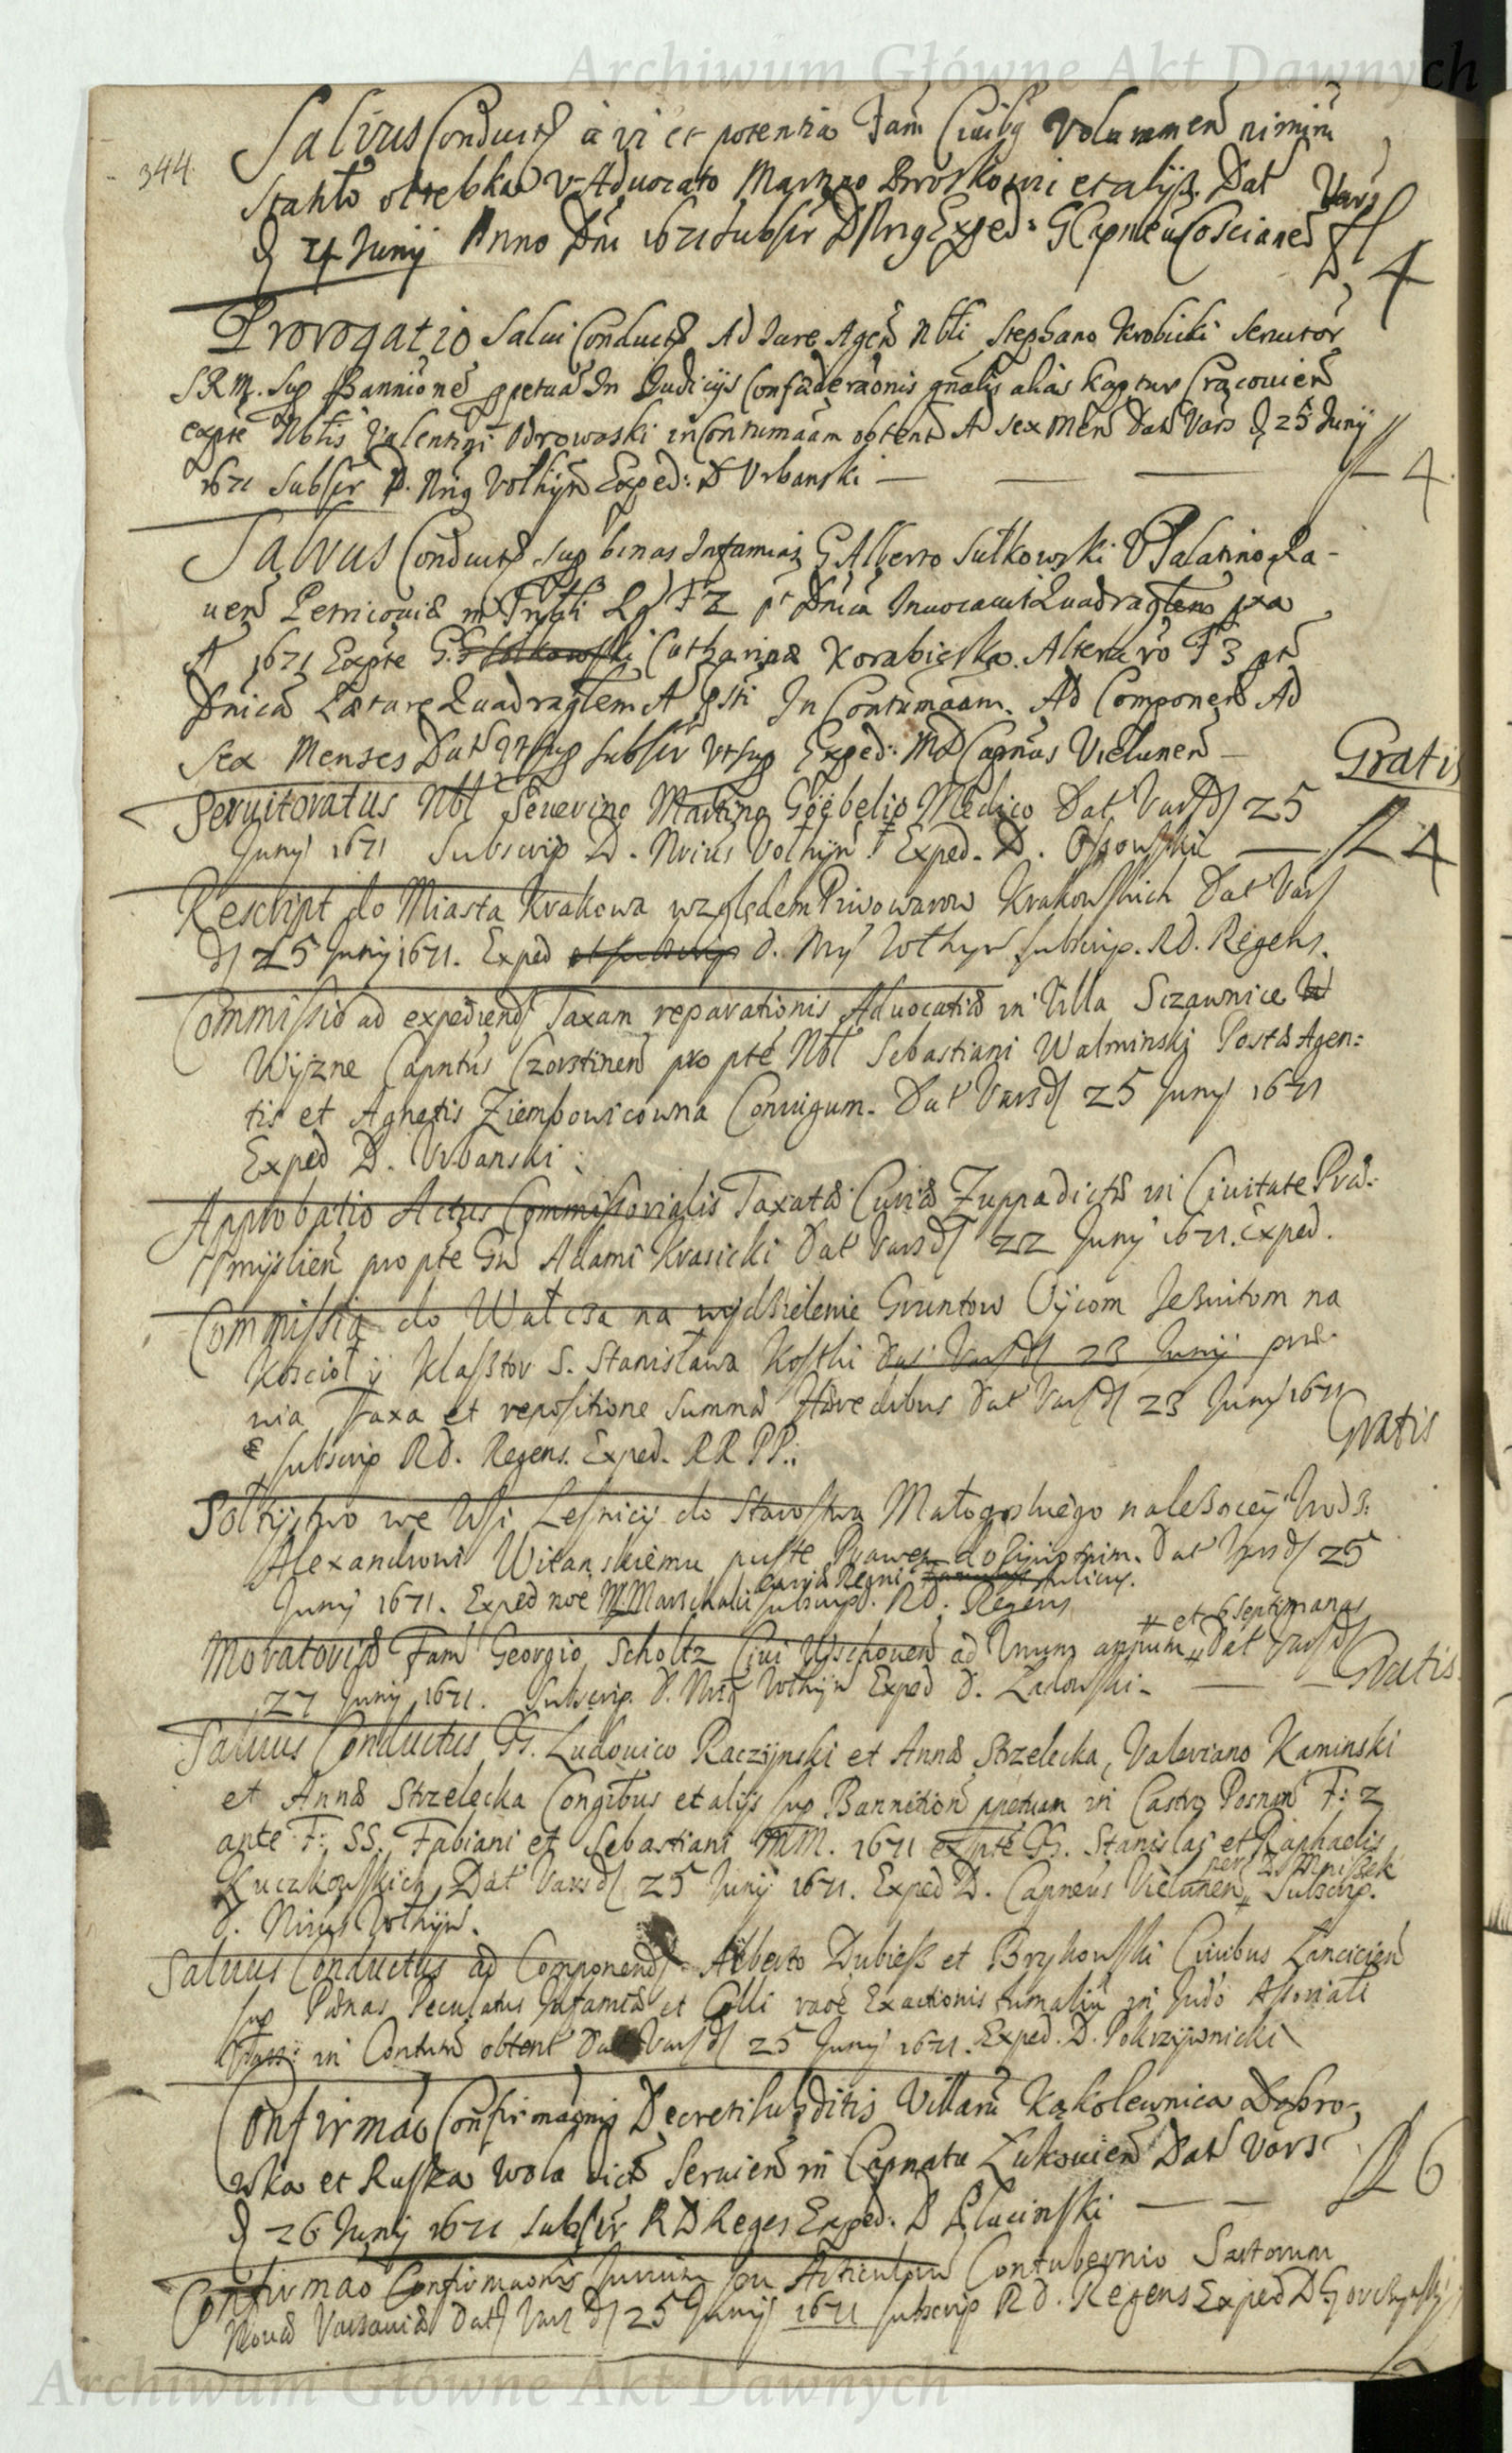 Archiwum Główne Akt Dawnych
344.
Salvus Conduct9 a vi et potentia Fam Civib9 Volummen nimiru
Stahlo oltebka V-Advocato Martino et alijs. Dat Vars
d 24 Junij Anno Dni 1671 Subscr D Nrig Exped: G Capneu Coscianen fl 4
Prorogatio Salui Conduct9 Ad Jure Agen Nbli Stephano Krobicki Seruitor
SRM. Sup Bannitione ppetua In Judicijs Confaederaonis gnalis alias Kaptur Cracouien
expte Nblis Valentini Odrowaski in Contumaam obtent A sex Men Dat Vars d 25 Junij
1671 Subscr D. Nrig Volhijn Exped: D Urbanski — — — fl 4.
Salvus Conduct9 sup binas Infamias G Alberto Sulkowski Palatino Ra-
uen Petricouiae in Lg F Z pt Dnica Inuocauit Quadragesm pxa
A 1671 Expte G. Catharina Korabieska. Altera ro F 3 pt
Dnica Laetare Quadraglem A psti In Contumaam. Ad Componen Ad
Sex Menses Dat Vt sup Subscr Vt sup Exped: MD Capnus Vielunen — Gratis
Seruitoratus Nbl Seuerino Martino Göebelio Medico Dat Vars d 25
Junij 1671 Subscrip D. Nrius Volhijn Exped. D. Ossowski — fl 4
Rescript do Miasta Krakowa względem Piwowarow Krakowskich Dat Vars
d 25 Junij 1671. Exped et subscrip d. Volhyn subscrip. Rd. Regens.
Commissio ad expediend Taxam reparationis Aduocatiae in Villa Sczawnice
Wyzne Capntus Czorstinen pro pte Nbl Sebastiani Walminskj Postae Agen:
tis et Agnetis Ziembowicowna Coniugum. Dat Vars d 25 Junij 1671
Exped D. Urbanski:
Approbatio Actus Commissorialis Taxatae Curiae Zuppa dictae in Ciuitate Prae-
myslien pro pte Gn Adami Krasicki Dat Vars d 22 Junij 1671. Exped.
Commissia do Wałcza na wydzielenie Gruntow Oycom Jezuitom na
Kościoł y Klasztor S. Stanisława Kostki Dat Vars d 23 Junij prae-
uia Taxa et repositione Summae Haeredibus Dat Vars d 23 Junij 1671
subscrip Rd. Regens. Exped. RR PP.: Gratis
Sołtystwo we Wsi Leśnicij do Starostwa Małogoskiego należącey Urodz:
Alexandrowi Witanskiemu puste Prawem dożywotnim. Dat Vars d 25
Junij 1671. Exped noe M. Marschalci Curiae Regni subscrip. Rd. Regens
Moratoriae Fam Georgio Scholtz Ciui Wschouen ad Unum annum # et 6 septimanas # Dat Vars d
27 Junij 1671. Subscrip. d. Nrig Volhijn Exped d. Lasowski — — Gratis
Saluus Conductus G. Ludouico Raczijnski et Anna Strzelecka, Valeriano Kaminski
et Anna Strzelecka Congibus et alijs sup Bannition ppetuam in Castro Posnan F: 2
ante F: SS. Fabiani et Sebastiani MM. 1671 ex pte G. Stanislai et Raphaelis
Kuczkowskich Dat Vars d 25 Junij 1671. Exped D. Capneus Vielunen # per D. Mniszek # Subscrip.
d. Nrius Volhijn.
Saluus Conductus ad Componend Alberto Dubiesz et Brykowski Ciuibus Lancicien
sup Paenas Peculatus Infamiae et Colli raoe Exactionis fumaliu in Judo
in Contum obtent Dat Vars d 25 Junij 1671. Exped. D. Pokrzijwnicki
Confirmao Confirmaonis Decreti subditis Villaru Kąkolewnica Dąbro-
wka et Ruska Wola dict Seruien in Capnatu Lukouien Dat Vars
d 26 Junij 1671 Subscr R D Reges Exped: D Plucinski — — fl 6
Confirmao Confirmaonis Jurium seu Articulorum Contubernio Sartorum
Nouae Varsauiae Dat Vars d 25 Junij 1671 subscrip Rd. Regens Exped D.
Archiwum Główne Akt Dawnych